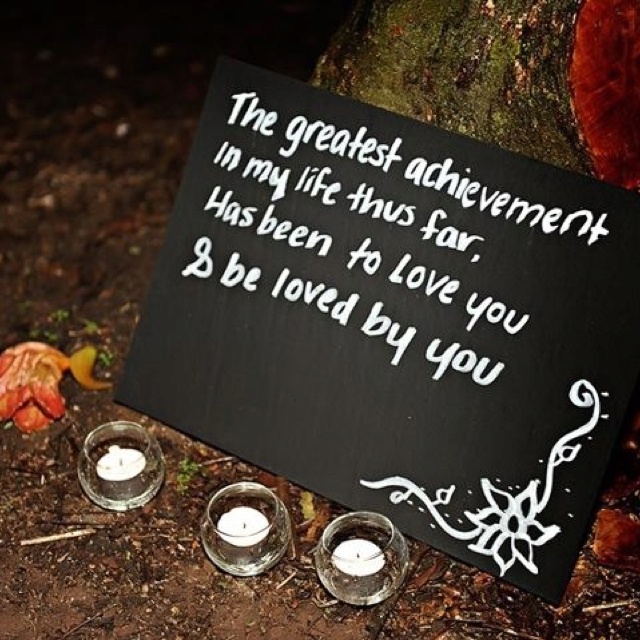 The greatest achievement
in my life thus far,
Has been to Love you
& be loved by you